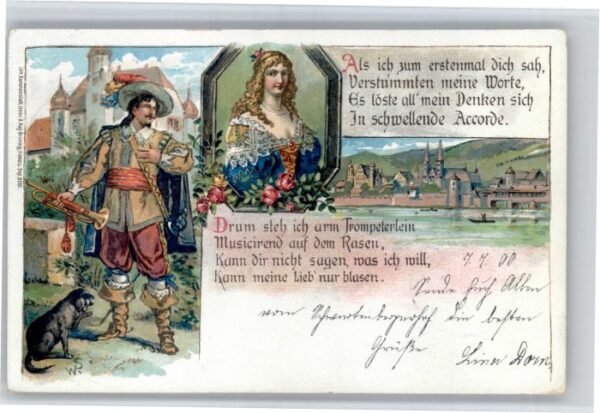 Als ich zum erstenmal dich sah,
Verstummten meine Worte,
Es löste all' mein Denken sich
In schwellende Accorde.
Drum steh ich arm Trompeterlein
Musicirend auf dem Rasen,
Kann dir nicht sagen, was ich will,
Kann meine Lieb' nur blasen.
7.7.00
Sende Euch Allen
vom Schwarten die besten
Grüße
Dorn